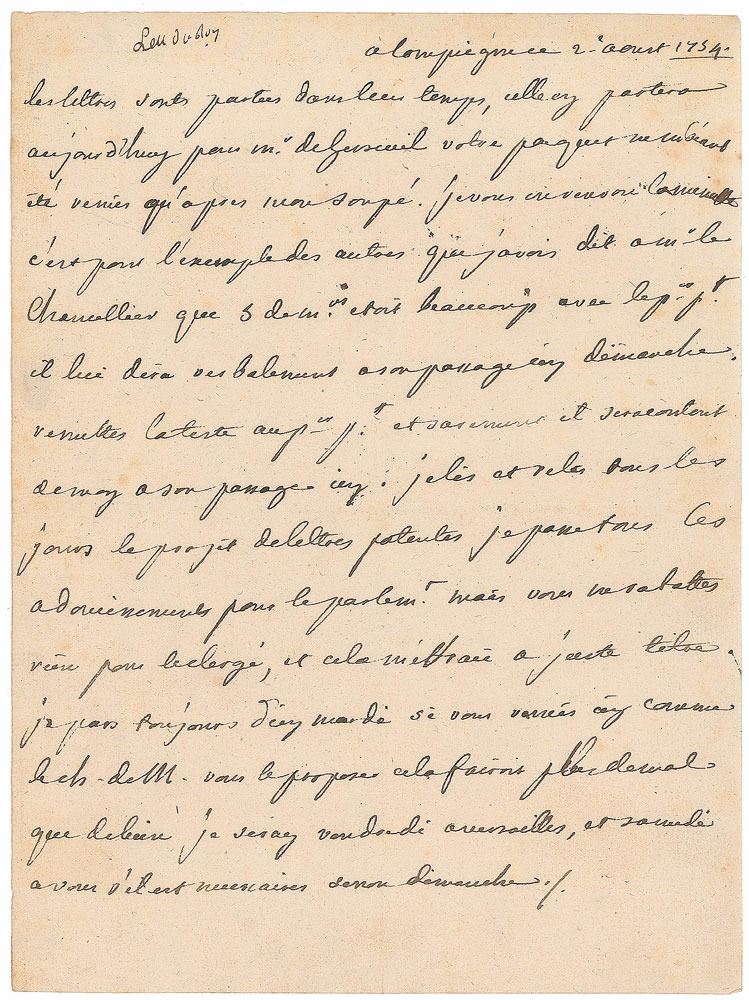 Lett du Roy
a Compiégne ce 2e aoust 1754.
les lettres sonts parties dans leur temps, celle cy partera
aujourd'huy pour mr. de votre paquet
été venus qu'apres mon soupé. je vous en renvoie la minutte
c'est pour l'exemple des autres que j'avois dit a mr le
Chancellier que 3 de mrs. etoit beaucoup avec le per. pt.
il lui dira verbalement a son passage icy dimanche.
la teste au per pt. et il sera content
de moy a son passage icy. je lis et relis tous les
jours le projet de lettres patentes je passe tous ces
adoucissements pour le parlemt. mais vous ne rabattes
rien pour le clergé, et cela a juste titre.
je pars toujours d'icy mardi si vous veniés icy comme
le ch. de M. vous le propose cela fairoit plus de mal
que de bien je seray vendredi a versailles, et samedi
a vous s'il est necessaires sinon dimanche ./.